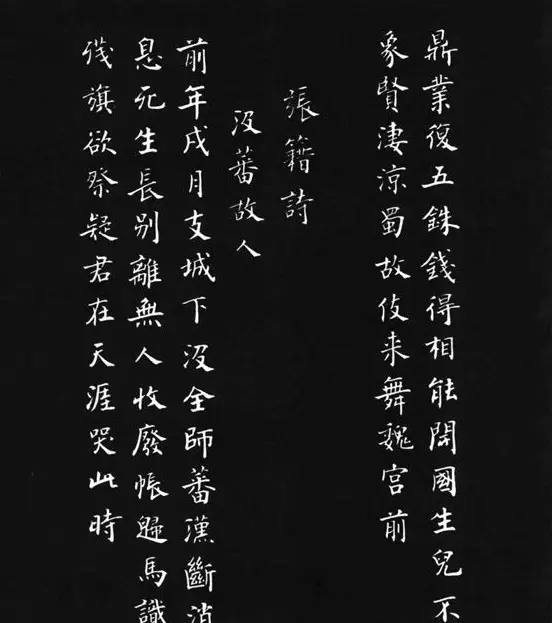 鼎業復五銖錢得相能開國生兒不
象賢淒涼蜀故伎来舞魏宮前
張籍詩
沒蕃故人
前年戍月支城下沒全師蕃漢斷消
息死生長别離無人收廢帳歸馬識
殘旗欲祭疑君在天涯哭此時